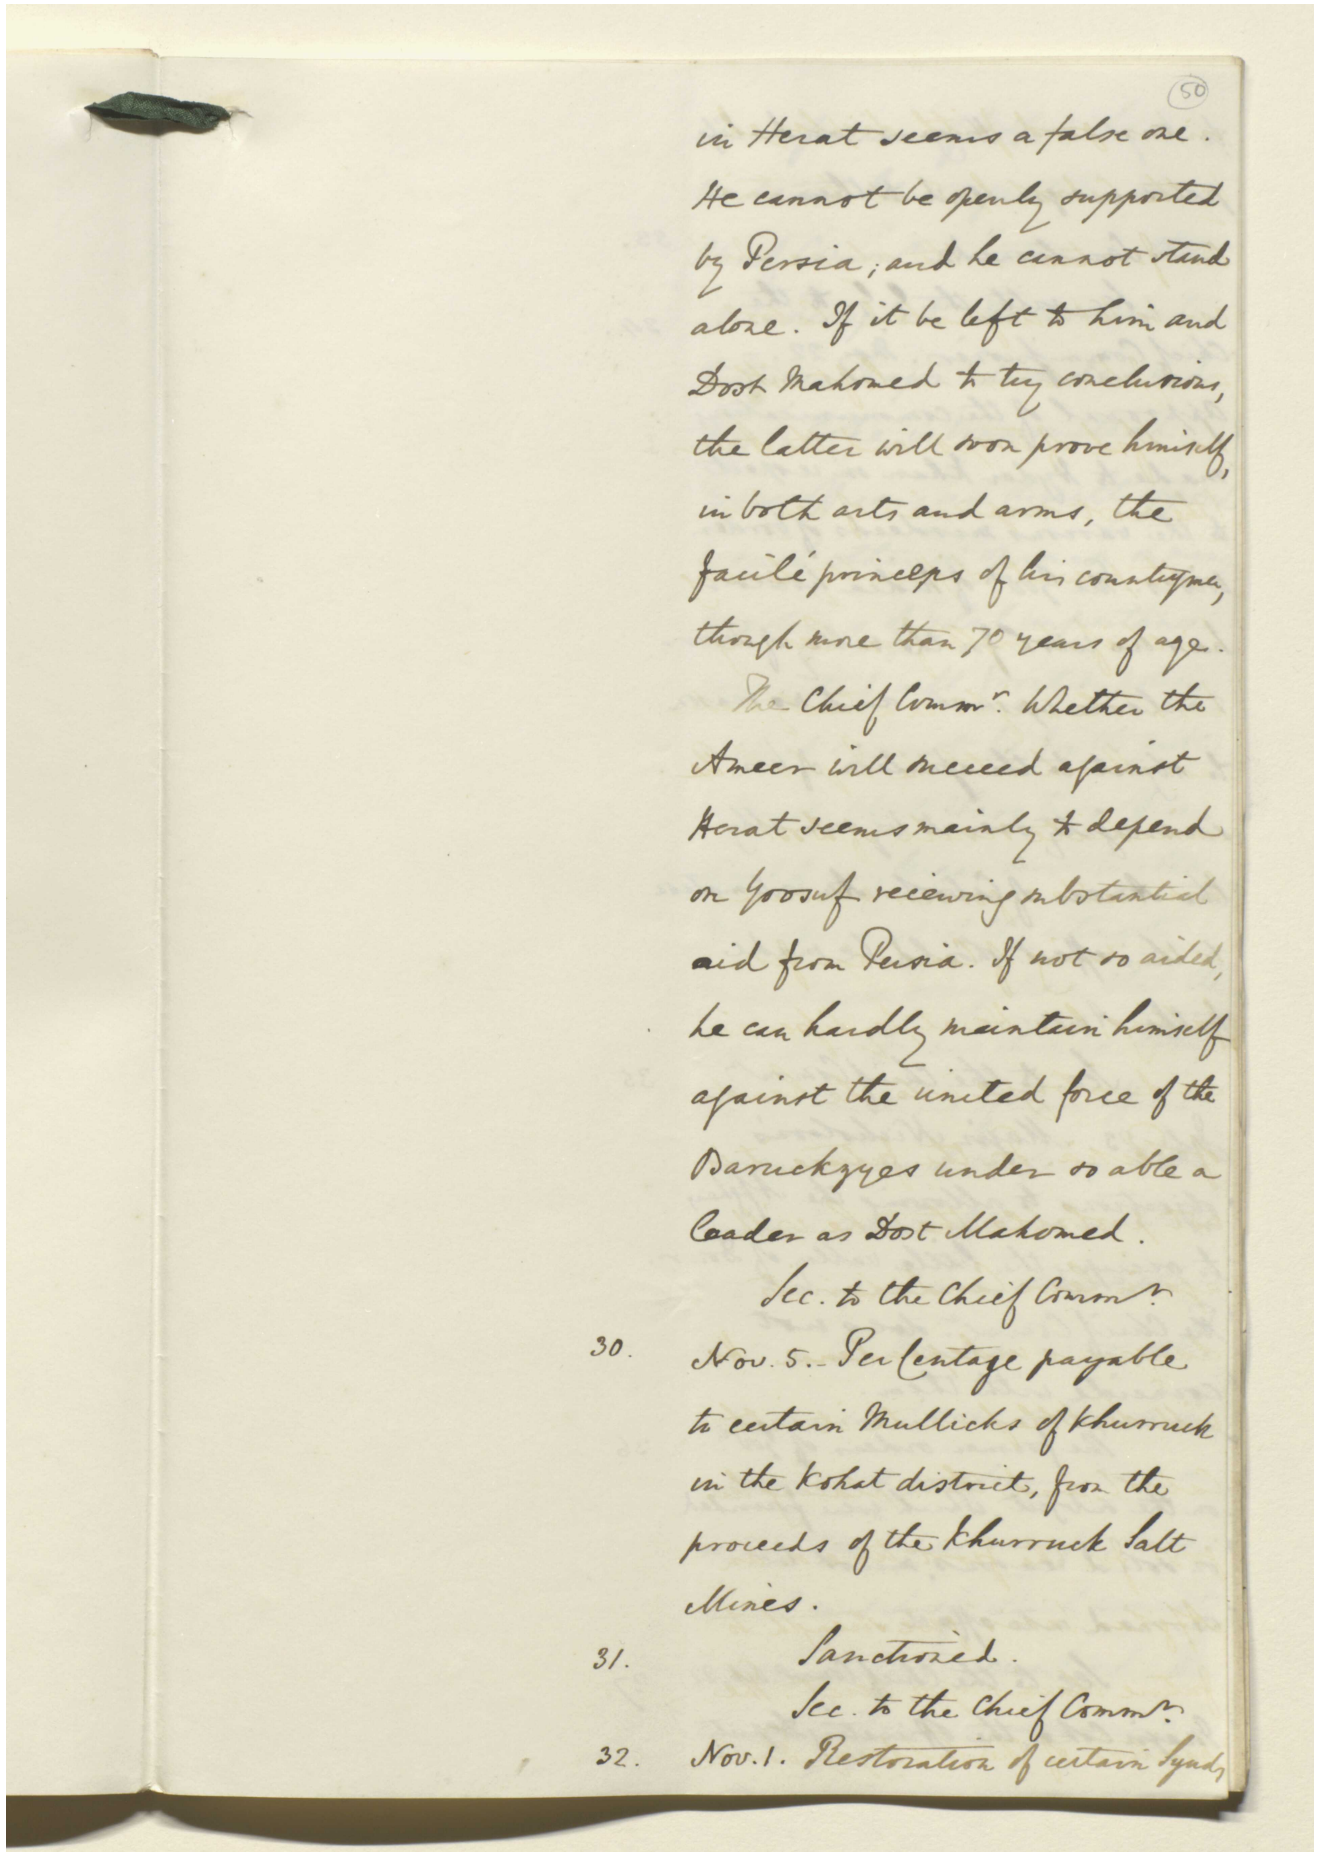 50
in Herat seems a false one.
He cannot be openly supported
by Persia; and he cannot stand
alone. If it be left to him and
Dost Mahomed to try conclusions,
the latter will soon prove himself,
in both arts and arms, the
facilé princeps of his countrymen,
though more than 70 years of age.
The Chief Commr. Whether the
Ameer will succeed against
Herat seems mainly to depend
on Yoosuf receiving substantial
aid from Persia. If not so aided,
he can hardly maintain himself
against the united force of the
Baruckzyes under so able a
leader as Dost Mahomed.
Sec. to the Chief Commr.
30. Nov. 5. - Per Centage payable
to certain Mullicks of Khurruck
in the Kohat district, from the
proceeds of the Khurruck Salt
Mines.
31. Sanctioned.
Sec. to the Chief Commr.
32. Nov. 1. Restoration of certain Synds